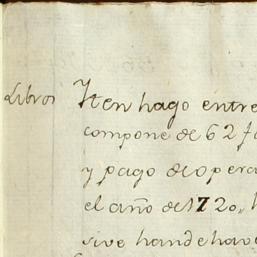 Libros
Iten hago entre
compone de 62 fo
y pago de opera
el año de 1720,
sive han de have